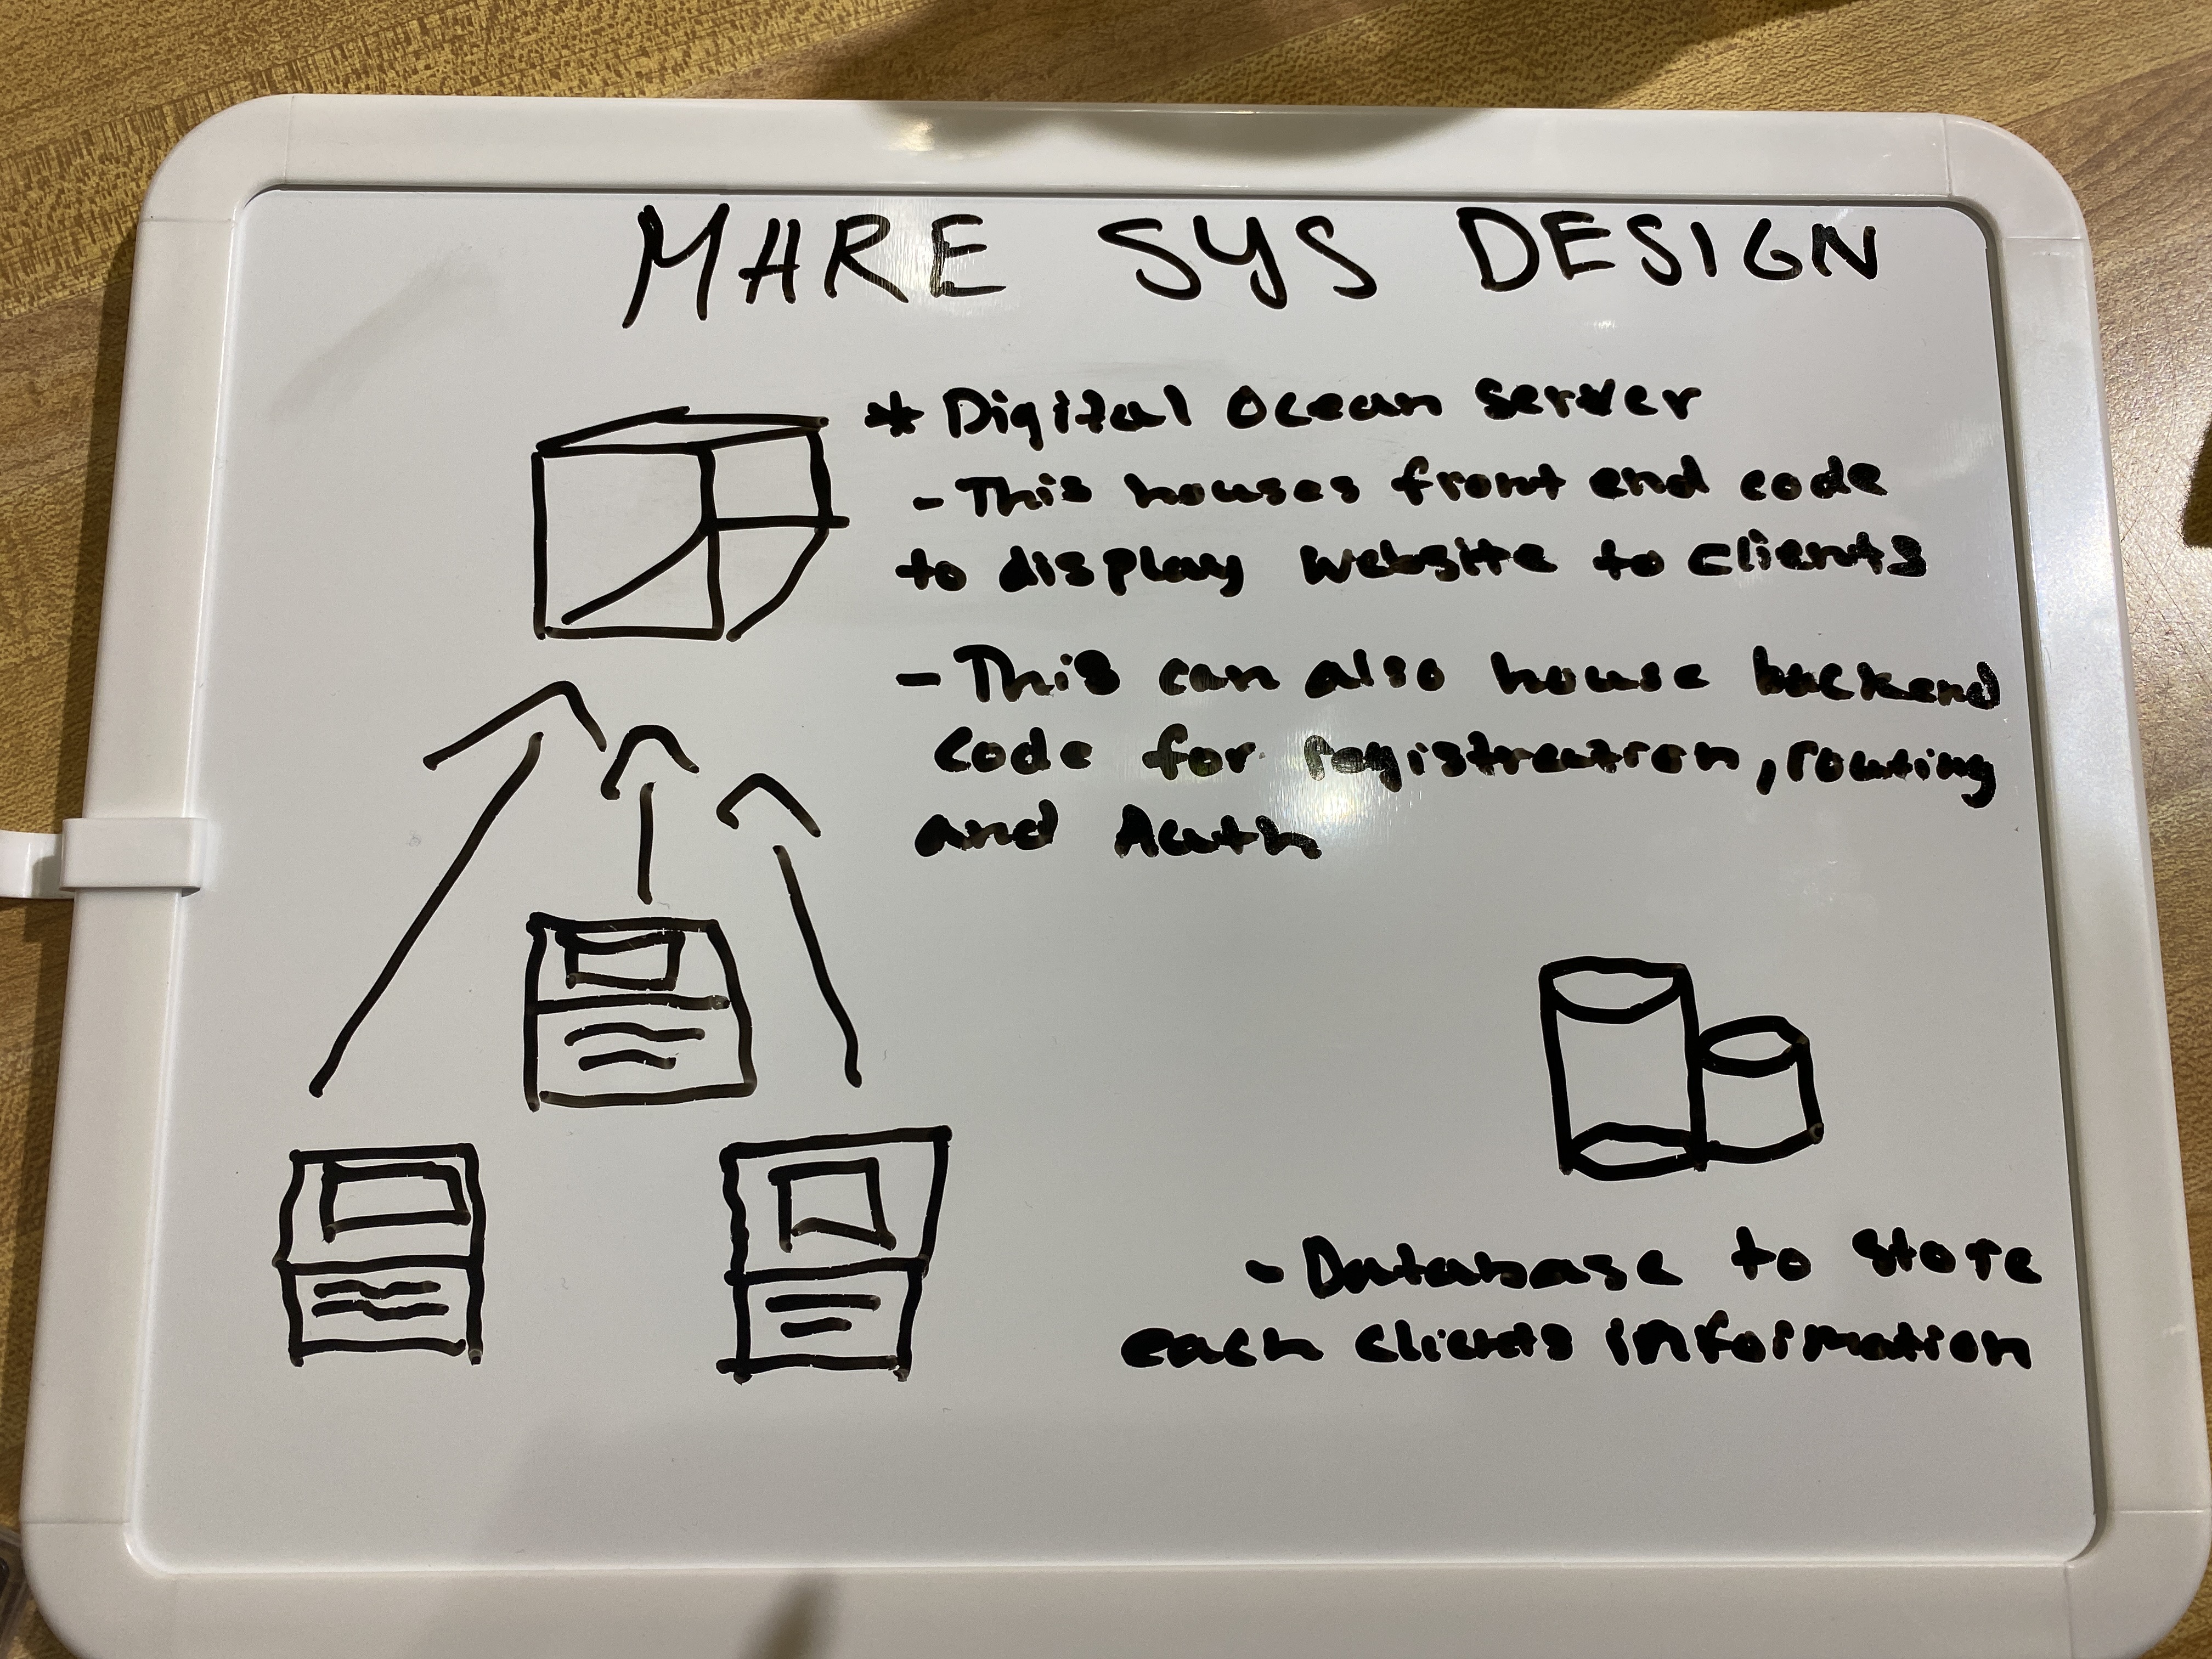 MHRE SYS DESIGN
* Digital Ocean Server
- This houses front end code
to display website to clients
- This can also house backend
code for registration, routing
and Auth
- Database to store
each clients information